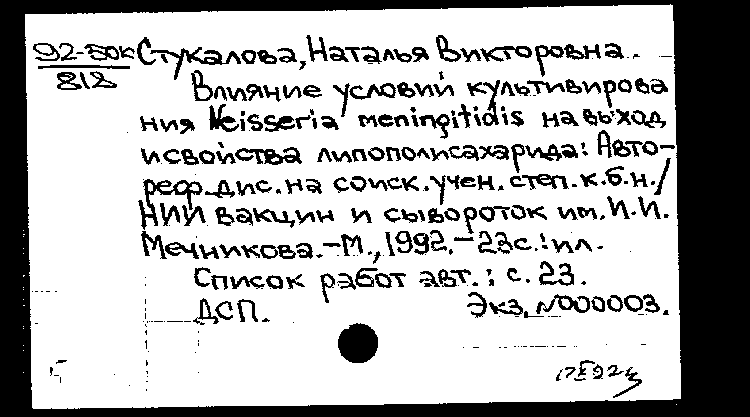 92-50к Стукалова, Наталья Викторовна.
818
Влияние условий культивирова
ния Neisseria meningitidis на выход
и свойства липополисахарида: Авто-
реф. дис. на соиск. учен. степ. к.б.н./
НИИ вакцин и сывороток им. И.И.
Мечникова. - М., 1992. - 23с.: ил.
Список работ авт.: с. 23.
ДСП. Экз. N000003.